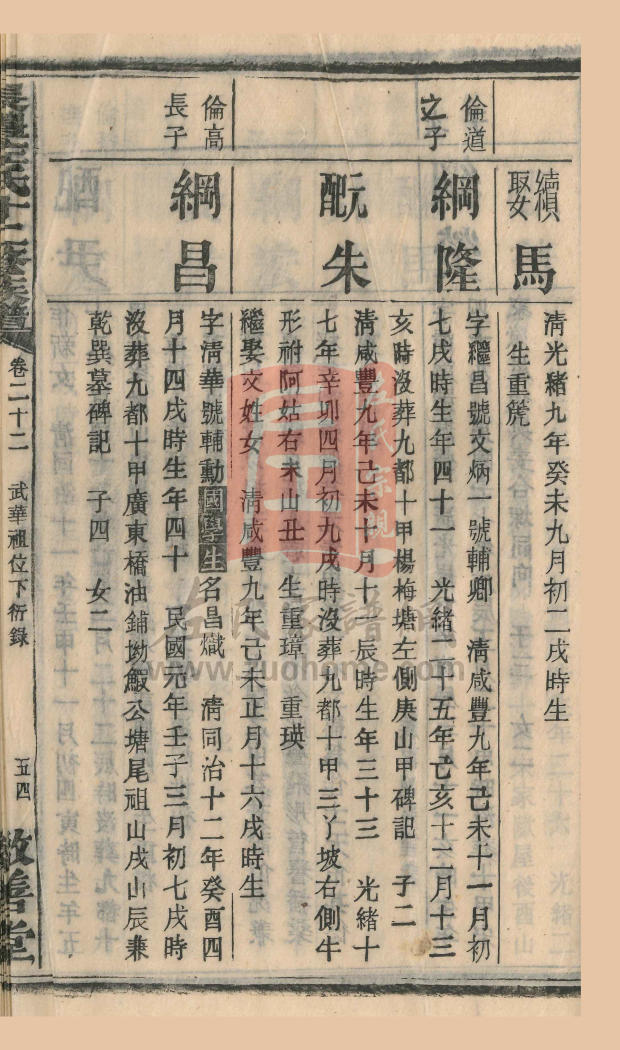 續娶槙
馬
清光緒九年癸未九月初二戌時生
生重箎
倫道之子
綱隆
字繼昌號文炳一號輔卿 清咸豐九年己未十一月初
七戌時生年四十一 光緒二十五年己亥十二月十三
亥時沒葬九都十甲楊梅塘左側庚山甲碑記 子二
配朱
清咸豐九年己未十月十一辰時生年三十三 光緒十
七年辛卯四月初九戌時沒葬九都十甲三丫坡右側牛
形祔阿姑右未山丑 生重璋 重瑛
繼娶文姓女 清咸豐九年己未正月十六戌時生
倫高長子
綱昌
字清華號輔勳國學生名昌熾 清同治十二年癸酉四
月十四戌時生年四十 民國元年壬子三月初七戌時
沒葬九都十甲廣東橋油鋪坳鰕公塘尾祖山戌山辰兼
乾巽墓碑記 子四 女二
氏十二修族譜
卷二十二
武華祖位下衍錄
五四
敦善堂
www.zuohome.com